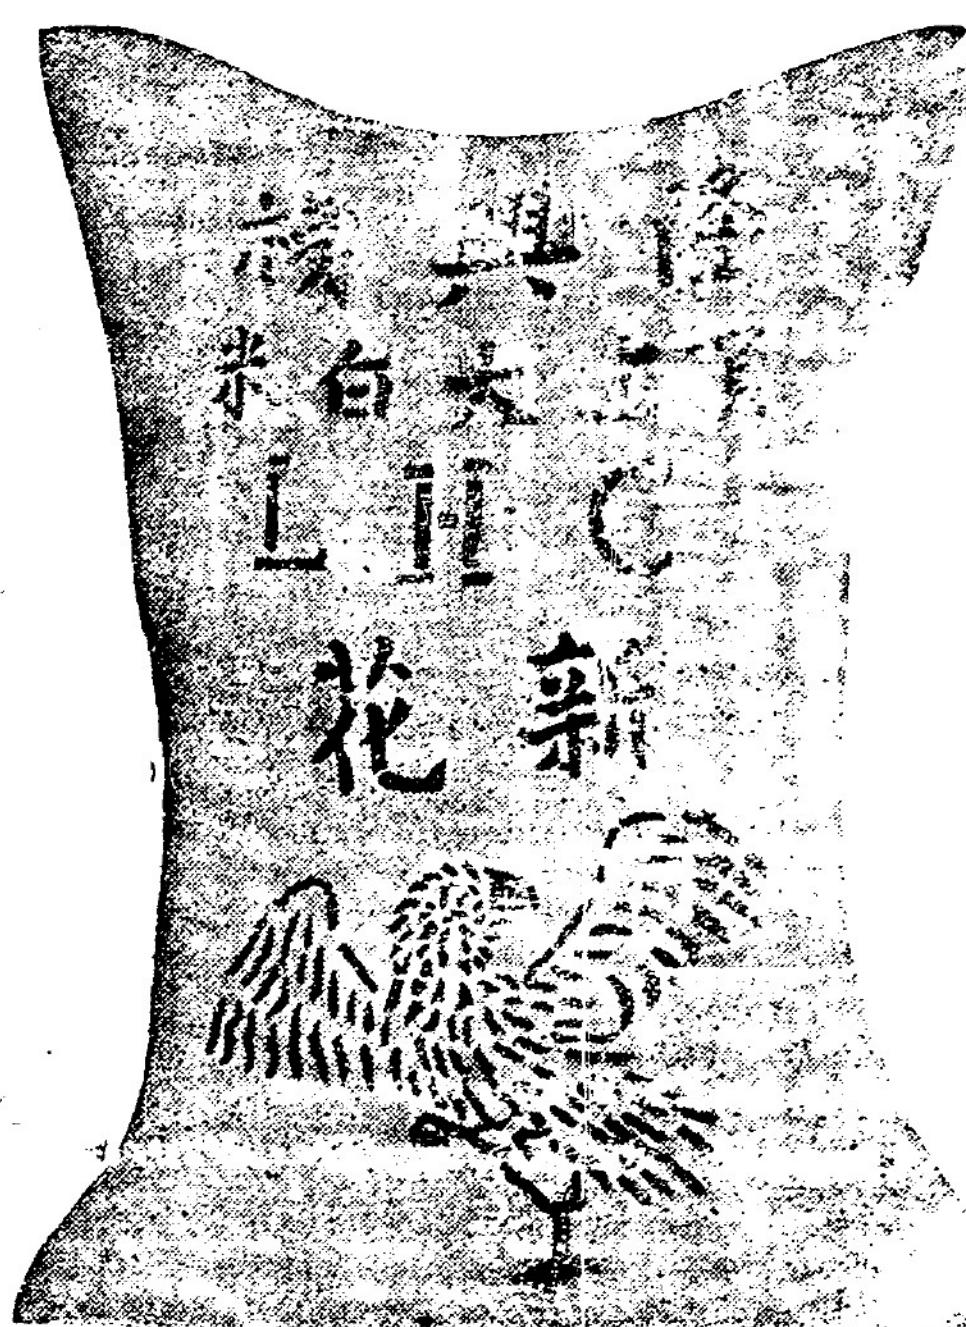 隆興
大白米
L H C
新花